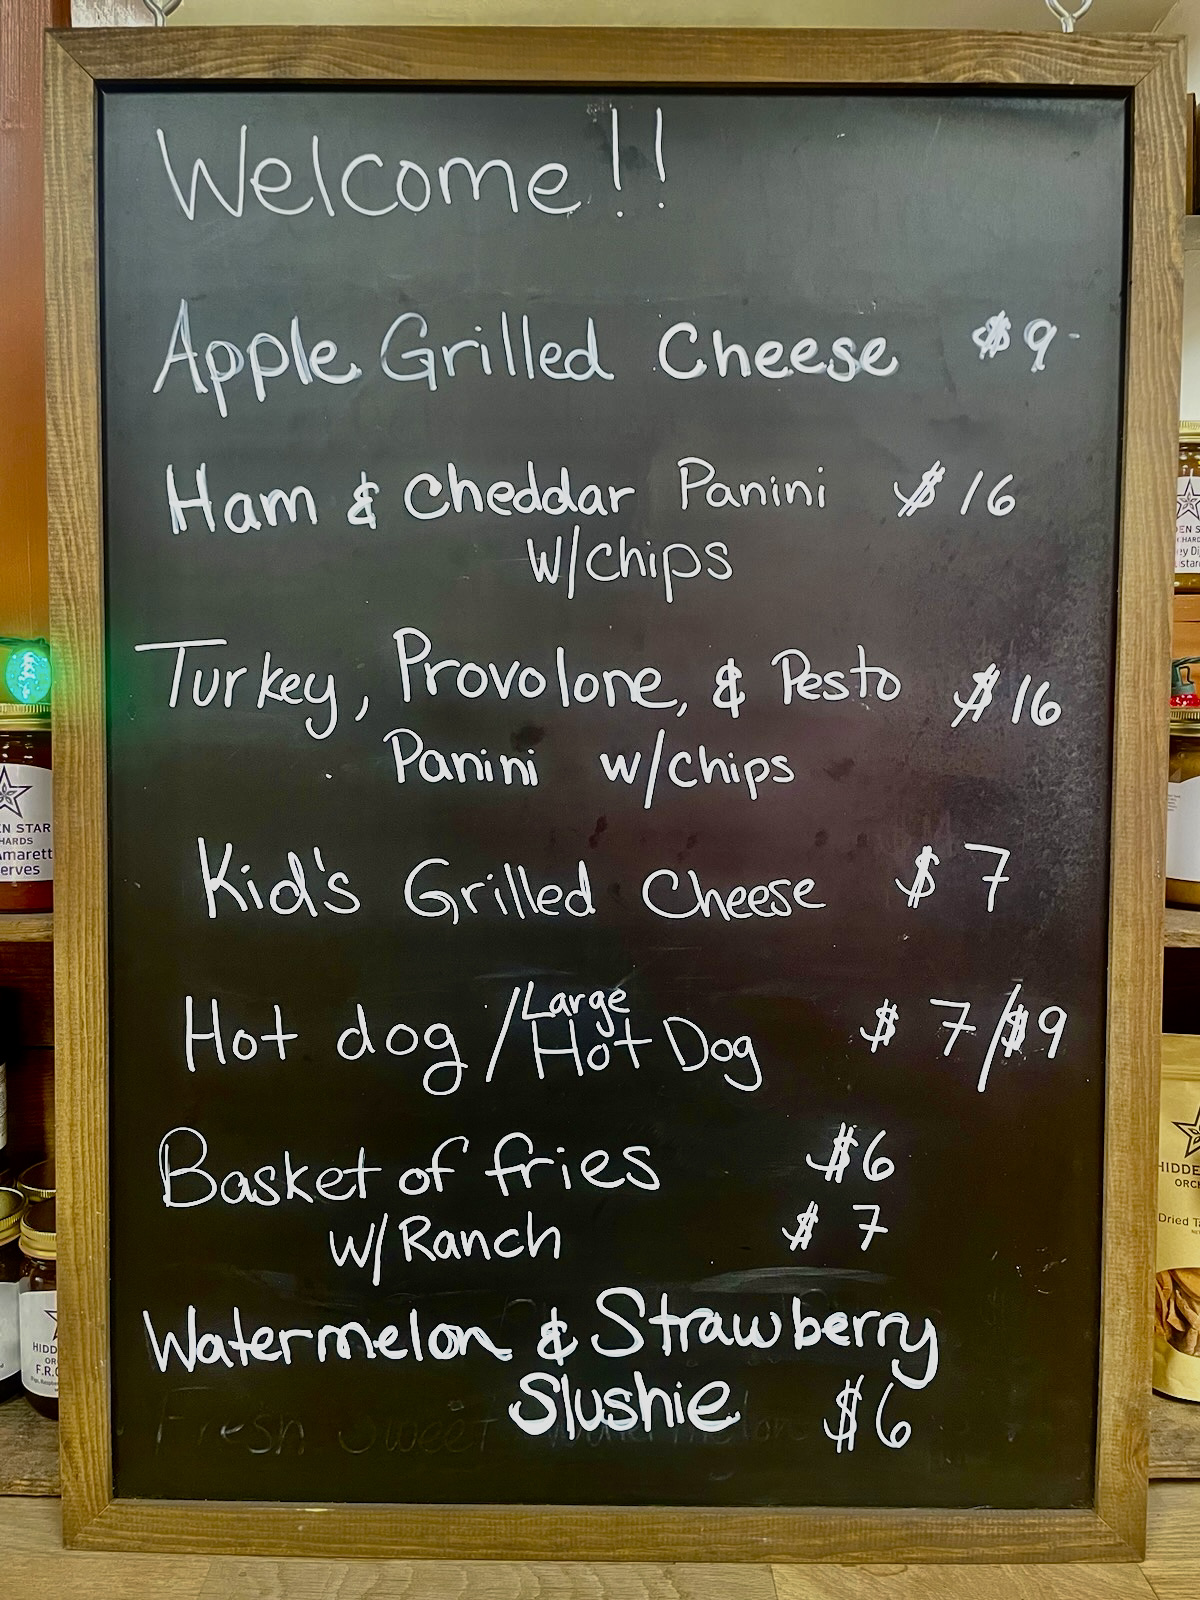 Welcome!!
Apple Grilled Cheese $9
Ham & Cheddar Panini $16
w/chips
Turkey, Provolone, & Pesto $16
Panini w/chips
Kid's Grilled Cheese $7
Hot dog / Large Hot Dog $7/$9
Basket of fries $6
w/Ranch $7
Watermelon & Strawberry
Slushie $6
Fresh Sweet Watermelon
EN STAR
HARDS
Amarett
erves
HIDD
OR
F.R.
HIDDE
ORC
Dried T